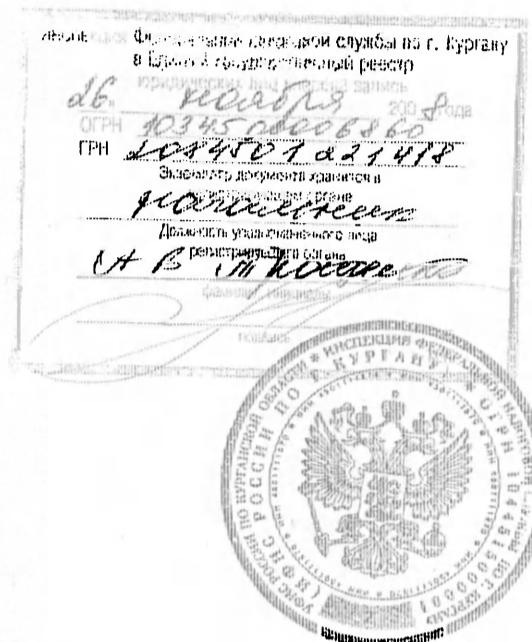 службы по г. Кургану
в Единый государственный реестр
юридических лиц внесена запись
26 ноября 2008 года
ОГРН 1034500006860
ГРН 2084501221418
Экземпляр документа хранится в
регистрирующем органе
начальник
Должность уполномоченного лица
регистрирующего органа
А В
фамилия, инициалы
подпись
ИНСПЕКЦИЯ ФЕДЕРАЛЬНОЙ НАЛОГОВОЙ СЛУЖБЫ ПО Г. КУРГАНУ
УФНС РОССИИ ПО КУРГАНСКОЙ ОБЛАСТИ
(ИФНС РОССИИ ПО Г. КУРГАНУ) * ОГРН